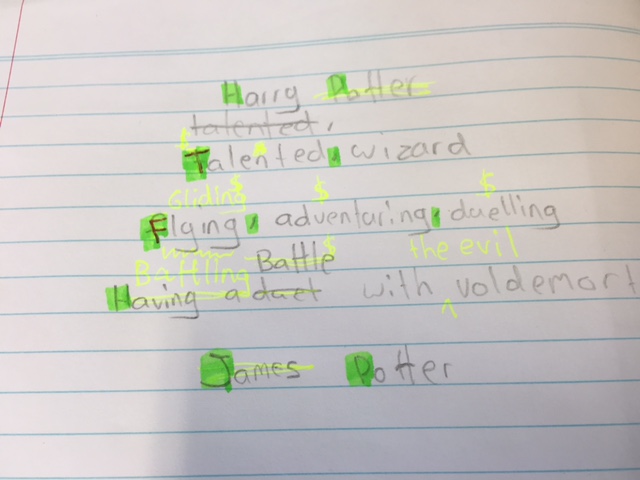 Harry Potter
talented,
Talented, wizard
Gliding
Flying, adventuring, duelling
Battling Battle the evil
Having a duel with voldemort
James Potter